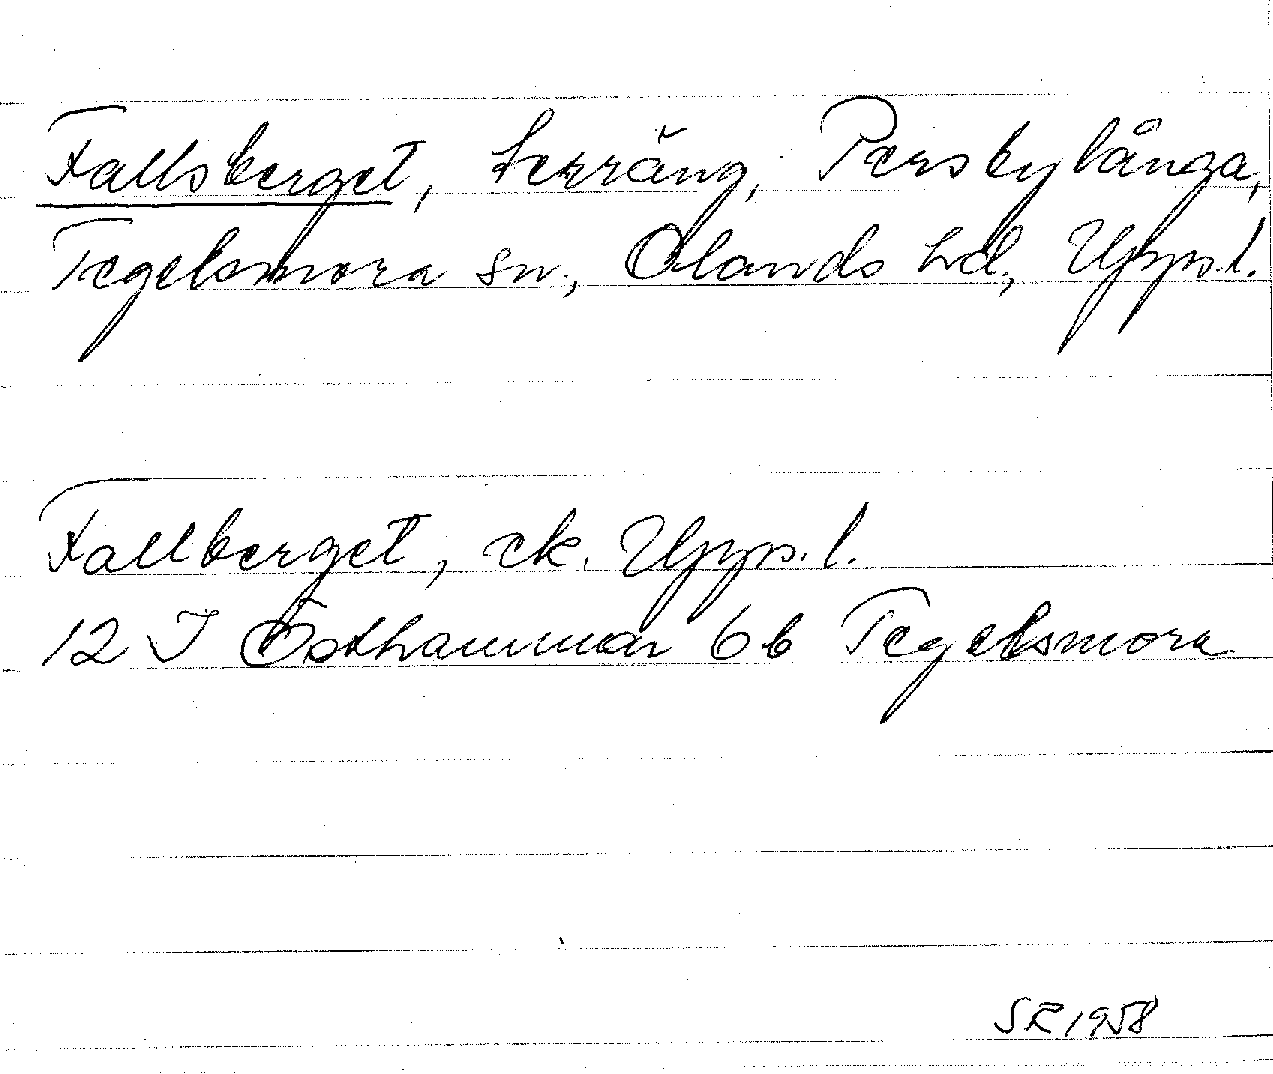 Fallsberget, Lerräng, Persbylånga,
Tegelsmora sn., Olands hd., Upps.l.
Fallberget, ek. Upps.l.
12 I Östhammar 6b Tegelsmora
SR 1958